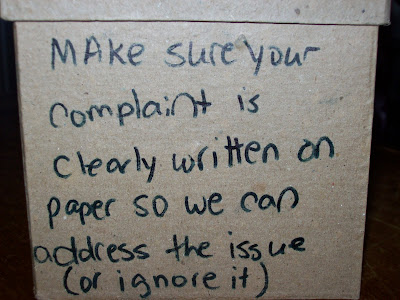 MAke sure your
complaint is
clearly written on
paper so we can
address the issue
(or ignore it)